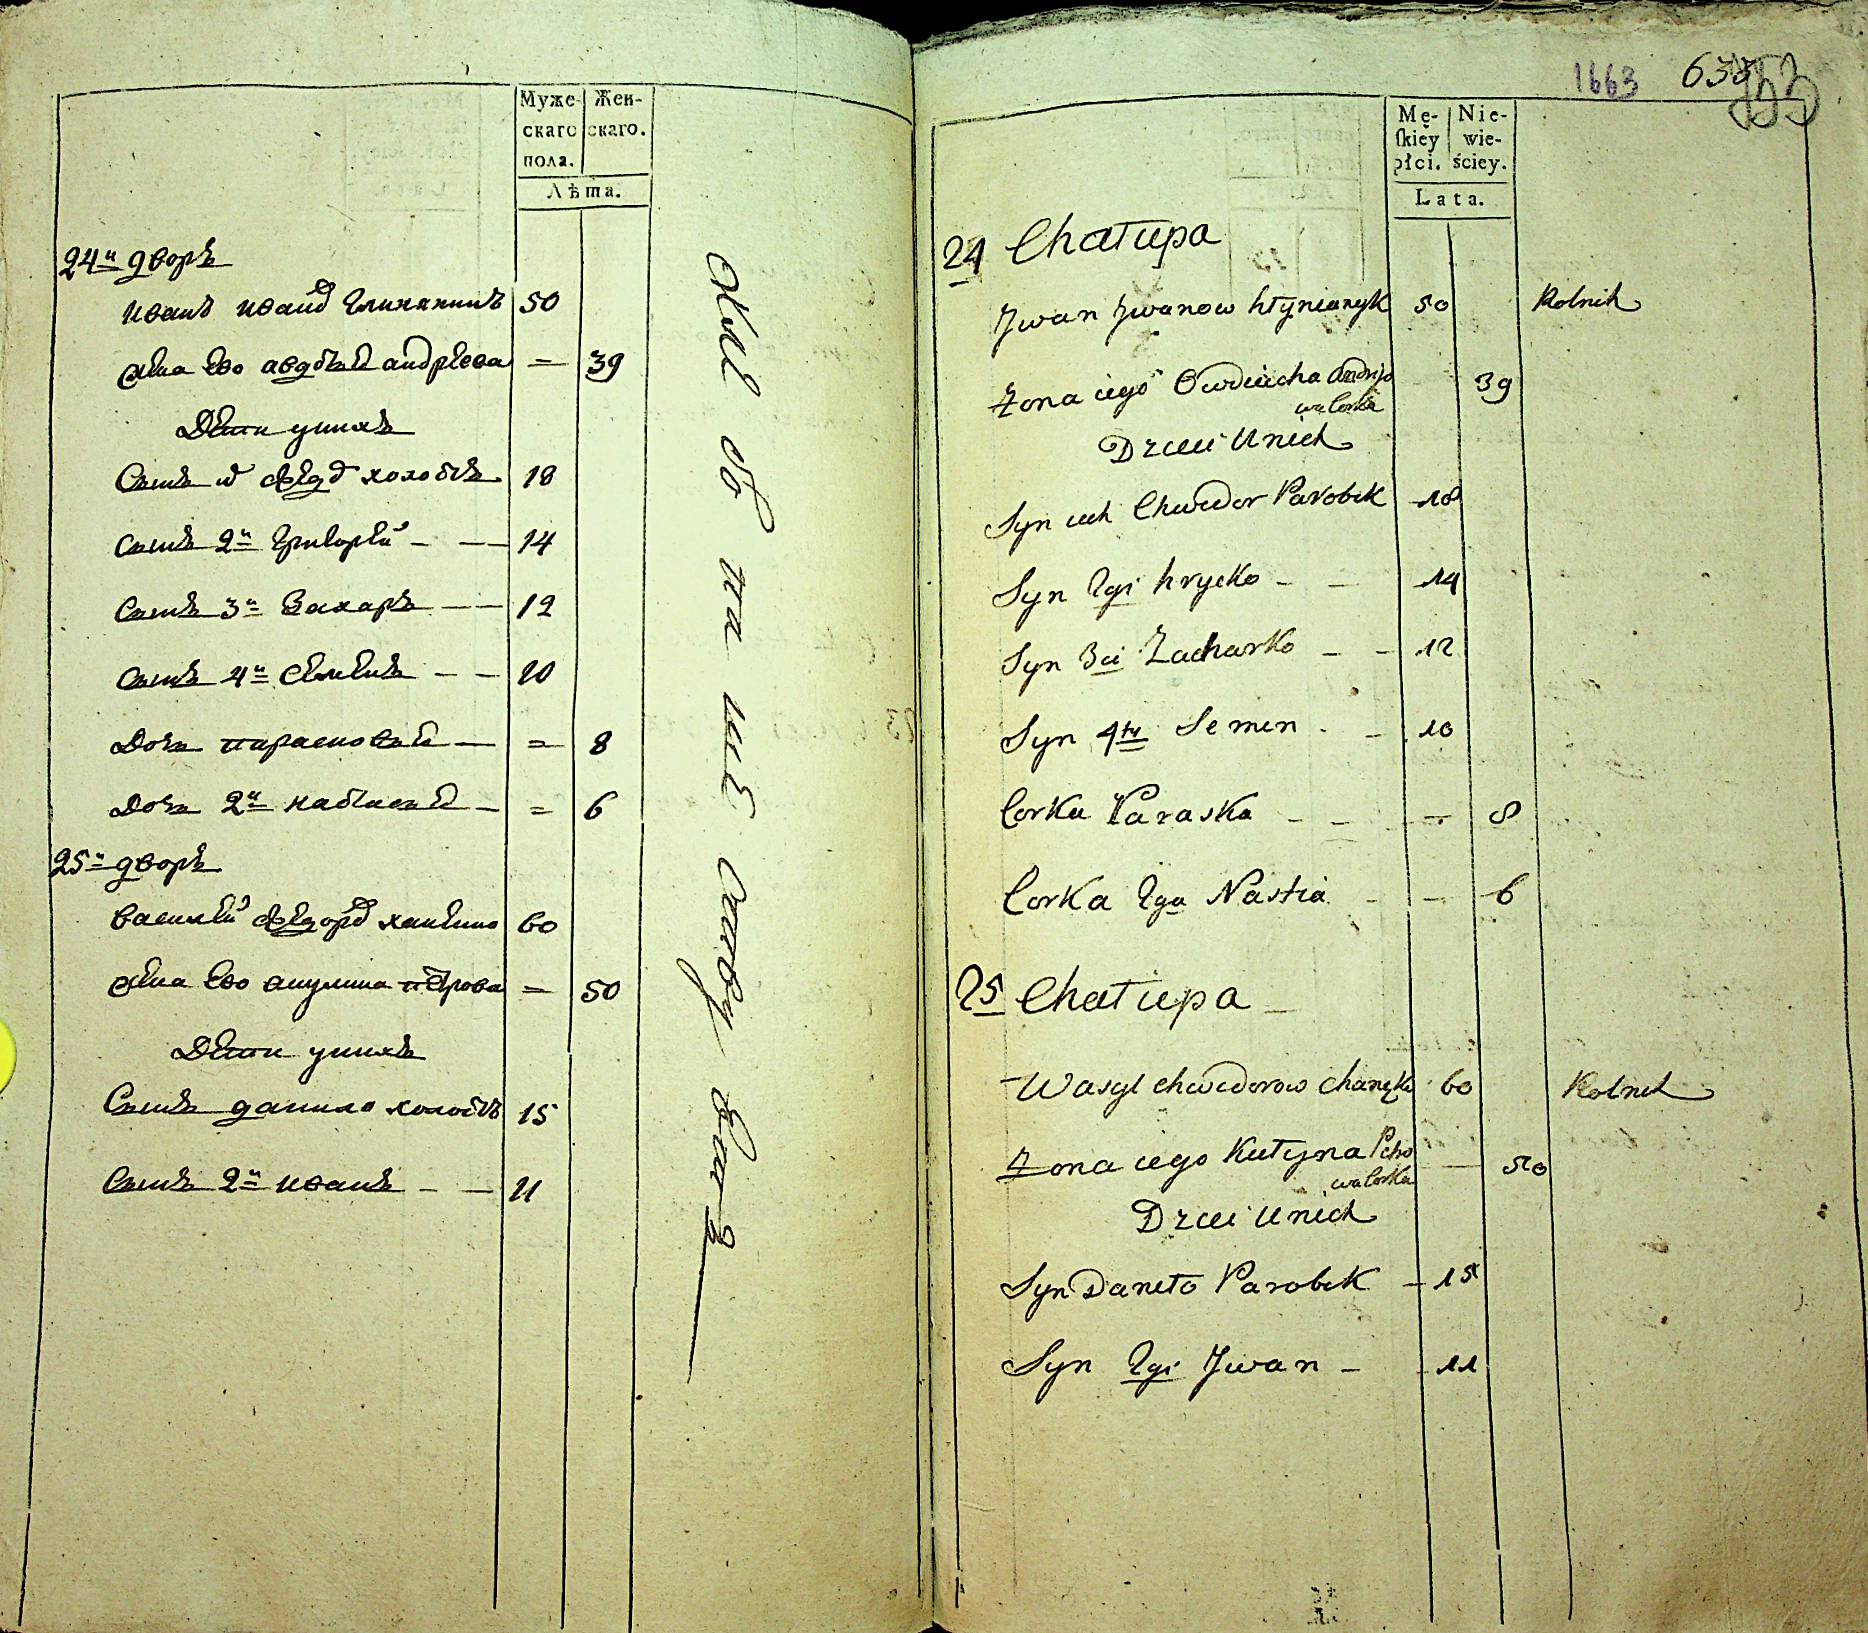 Муже-
скаго
пола.
Жен-
скаго.
Лѣта.
24й дворъ
Иванъ Иванов Глиняникъ 50
Жена Ево Авдотья Андрѣева = 39
Дети у нихъ
Сынъ Федор холостъ 18
Сынъ 2й Григорей - - 14
Сынъ 3й Захаръ - - 12
Сынъ 4й Семенъ - - 10
Дочь парасковья - = 8
Дочь 2я настасья - = 6
25й дворъ
Василей Федоров ханенко 60
Жена Ево акулина петрова = 50
Дети у нихъ
Сынъ данило холостъ 15
Сынъ 2й иванъ - - 11
1663 633
153
Mę-
ſkiey
płci.
Nie-
wie-
ściey.
Lata.
24 Chałupa
Jwan Jwanow hłynianyk 50 Rolnik
Żona iego Owdiucha Andrijo
wa Corka 39
Dzieci Unich
Syn ich Chwedor Parobek - 18
Syn 2gi hrycko - - 14
Syn 3ci Zacharko - - 12
Syn 4ty Semen - - 10
Corka Paraska - - - 8
Corka 2ga Nastia - - 6
25 Chałupa -
Wasyl Chwedorow Chanenko 60 Rolnik
Żona iego Kulyna Petro
wa Corka - 50
Dzieci Unich
Syn Daneło Parobek - 15
Syn 2gi Jwan - 11